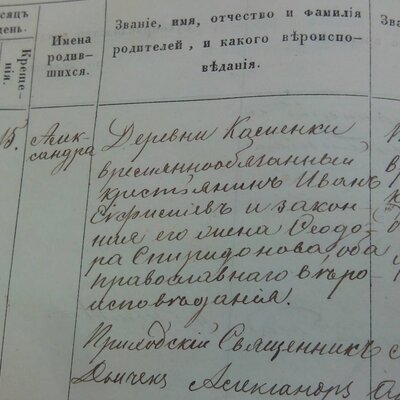 сяцъ
день.
Креще-
нія.
Имена
родив-
шихся.
Званіе, имя, отчество и фамилія
родителей, и какого вѣроиспо-
вѣданія.
Зва
15.
Алек-
сандра
Деревни Касиенки
временнообязанный
крестьянинъ Иванъ
и закон-
ная его жена Ѳеодо-
ра Спиридонова, оба
православнаго вѣро
исповѣданія.
Приходскій Священникъ
Александръ